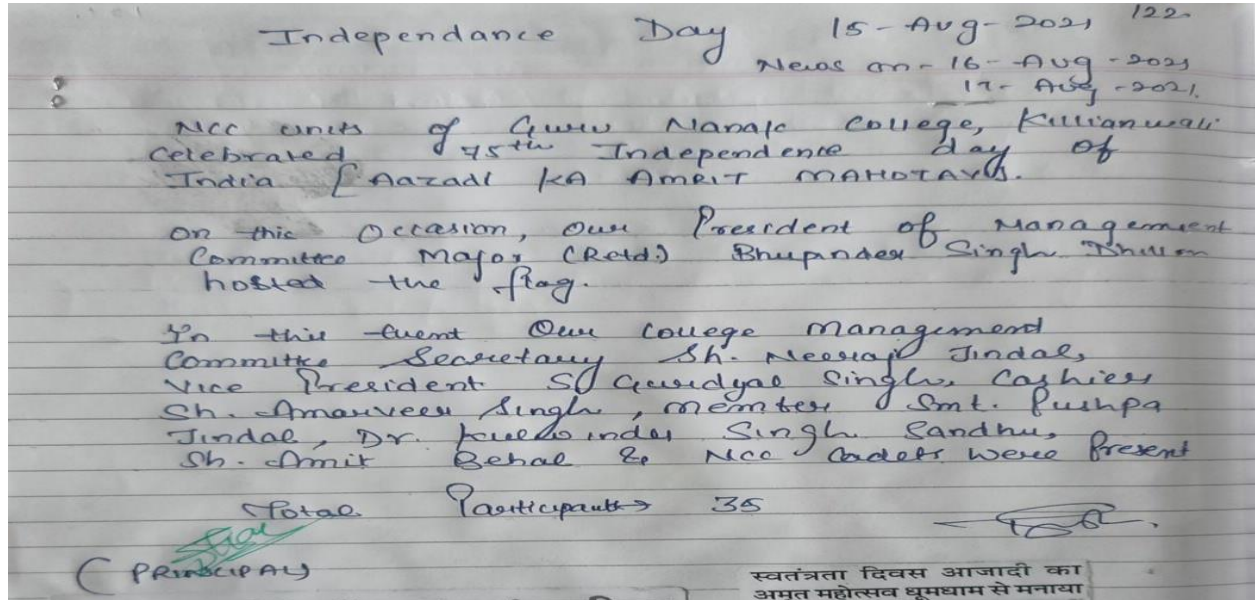 122.
Independance Day 15-Aug-2021
News on - 16-Aug-2021
17-Aug-2021.
NCC units of Guru Nanak College, Killianwali
celebrated 75th Independence day of
India [AAZADI KA AMRIT MAHOTAVS.
On this Occasion, Our President of Management
Committee Major (Retd.) Bhupinder Singh Dhillon
hosted the flag.
In this Event Our College Management
Committee Secretary Sh. Neeraj Jindal,
Vice President S. Gurdyal Singh, Cashier
Sh. Amarveer Singh, member Smt. Pushpa
Jindal, Dr. Kulwinder Singh Sandhu,
Sh. Amit Behal & NCC Cadets were Present
Total Participants → 35
(PRINCIPAL)
स्वतंत्रता दिवस आजादी का
अमृत महोत्सव धूमधाम से मनाया